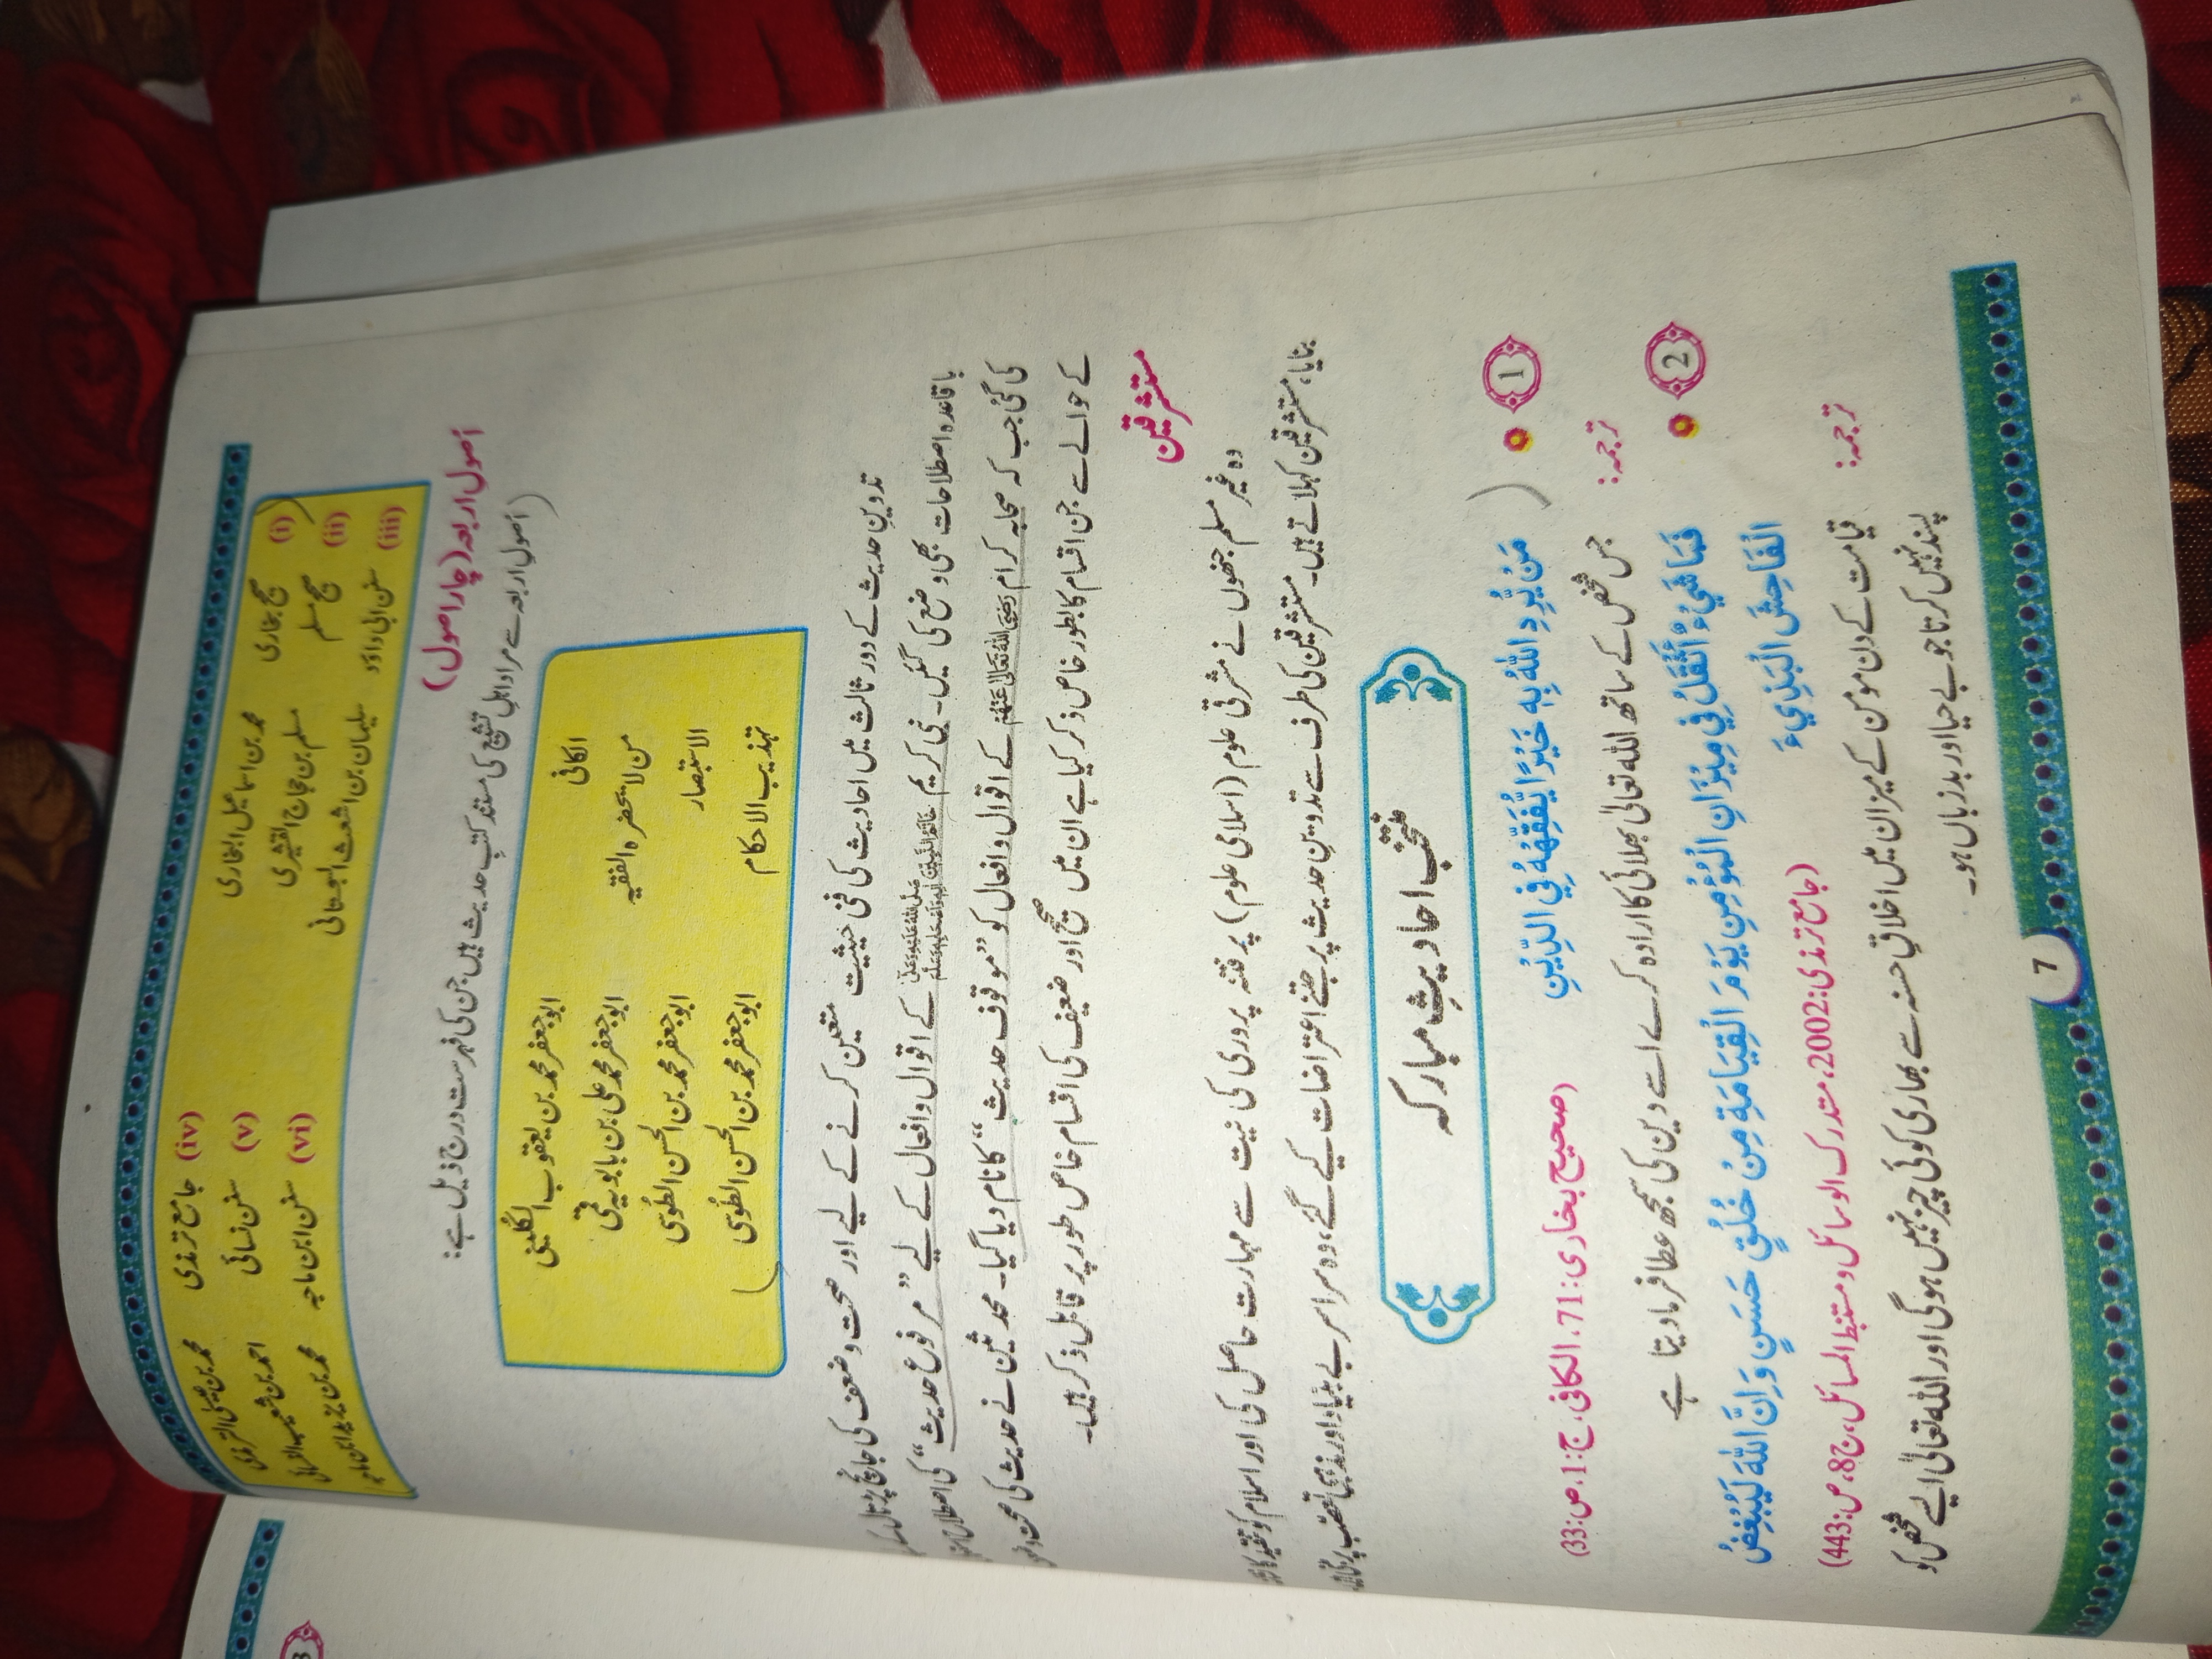 (i) صحیح بخاری محمد بن اسماعیل البخاری (iv) جامع ترمذی محمد بن عیسیٰ الترمذی
(ii) صحیح مسلم مسلم بن حجاج القشیری (v) سنن نسائی احمد بن شعیب النسائی
(iii) سنن ابی داؤد سلیمان بن اشعث السجستانی (vi) سنن ابن ماجہ محمد بن یزید ابن ماجہ
اصول اربعہ (چار اصول)
اصول اربعہ سے مراد اہلِ تشیع کی مستند کتبِ حدیث ہیں جن کی فہرست درج ذیل ہے:
الکافی ابو جعفر محمد بن یعقوب الکلینی
من لا یحضرہ الفقیہ ابو جعفر محمد علی بن بابویہ قمی
الاستبصار ابو جعفر محمد بن الحسن الطوسی
تہذیب الاحکام ابو جعفر محمد بن الحسن الطوسی
تدوینِ حدیث کے دور ثالث میں احادیث کی فنی حیثیت متعین کرنے کے لیے اور صحت و ضعف کی جانچ پڑتال کے
باقاعدہ اصطلاحات بھی وضع کی گئیں۔ نبی کریم خَاتَمُ النَّبِیّٖنَ صَلَّی اللہُ عَلَیْہِ وَعَلٰی اٰلِہٖ وَاَصْحَابِہٖ وَسَلَّمَ کے اقوال و افعال کے لیے ”مرفوع حدیث“ کی اصطلاح
کی گئی جب کہ صحابہ کرام رَضِیَ اللہُ تَعَالٰی عَنْہُمْ کے اقوال و افعال کو ”موقوف حدیث“ کا نام دیا گیا۔ محدثین نے حدیث کی صحت و
کے حوالے سے جن اقسام کا بطور خاص ذکر کیا ہے ان میں صحیح اور ضعیف کی اقسام خاص طور پر قابل ذکر ہیں۔
مستشرقین
وہ غیر مسلم جنھوں نے مشرقی علوم (اسلامی علوم) پر فتنہ پروری کی نیت سے مہارت حاصل کی اور اسلام کو تنقید کا
بنایا، مستشرقین کہلاتے ہیں۔ مستشرقین کی طرف سے تدوینِ حدیث پر جتنے اعتراضات کیے گئے، وہ سراسر بے بنیاد اور مذہبی تعصب پر
منتخب احادیثِ مبارکہ
1 مَنْ یُّرِدِ اللّٰہُ بِہٖ خَیْرًا یُّفَقِّھْہُ فِی الدِّیْنِ
(صحیح بخاری: 71، الکافی، ج: 1، ص: 33)
ترجمہ: جس شخص کے ساتھ اللہ تعالیٰ بھلائی کا ارادہ کرے اسے دین کی سمجھ عطا فرما دیتا ہے
2 فَمَا شَیْءٌ اَثْقَلُ فِی مِیْزَانِ الْمُؤْمِنِ یَوْمَ الْقِیَامَۃِ مِنْ خُلُقٍ حَسَنٍ وَاِنَّ اللّٰہَ لَیُبْغِضُ
الْفَاحِشَ الْبَذِیْءَ
(جامع ترمذی: 2002، مستدرک الوسائل و مستنبط المسائل، ج: 8، ص: 443)
ترجمہ: قیامت کے دن مومن کے میزان میں اخلاقِ حسنہ سے بھاری کوئی چیز نہیں ہوگی اور اللہ تعالیٰ ایسے شخص کو
پسند نہیں کرتا جو بے حیا اور بدزبان ہو۔
7
3